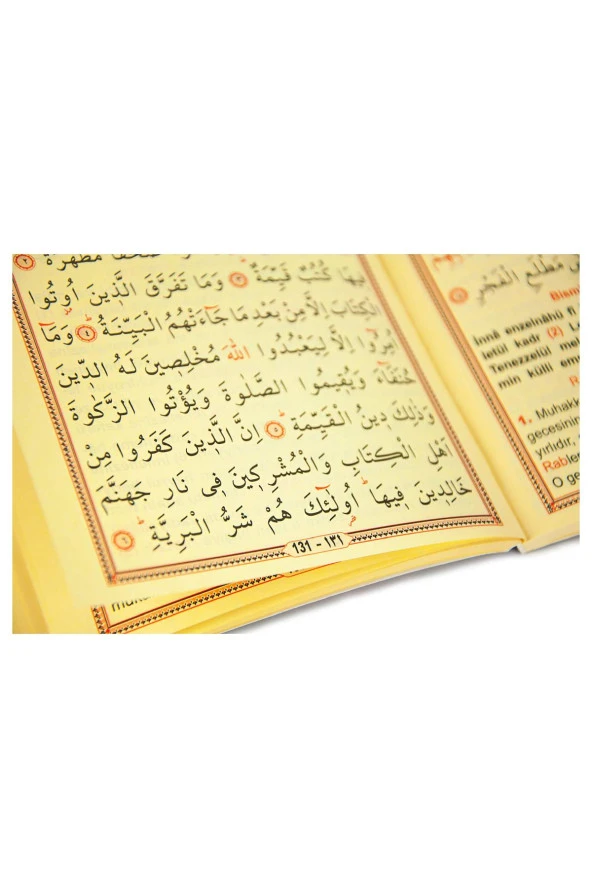 صُحُفًا مُطَهَّرَةً ﴿٢﴾
فِيهَا كُتُبٌ قَيِّمَةٌ ﴿٣﴾ وَمَا تَفَرَّقَ الَّذِينَ اُوتُوا
الْكِتَابَ اِلَّا مِنْ بَعْدِ مَا جَآءَتْهُمُ الْبَيِّنَةُ ﴿٤﴾ وَمَآ
اُمِرُٓوا اِلَّا لِيَعْبُدُوا اللّٰهَ مُخْلِصِينَ لَهُ الدِّينَ
حُنَفَآءَ وَيُقِيمُوا الصَّلٰوةَ وَيُؤْتُوا الزَّكٰوةَ
وَذٰلِكَ دِينُ الْقَيِّمَةِ ﴿٥﴾ اِنَّ الَّذِينَ كَفَرُوا مِنْ
اَهْلِ الْكِتَابِ وَالْمُشْرِكِينَ فِى نَارِ جَهَنَّمَ
خَالِدِينَ فِيهَا اُولٰٓئِكَ هُمْ شَرُّ الْبَرِيَّةِ ﴿٦﴾
131 - ١٣١
مَطْلَعِ الْفَجْرِ ﴿٥﴾
Bism
İnnâ enzelnâhü fî
letül kadr (2) Le
Tenezzelül mel
min külli eme
R
1. Muhakk
gecesinin
yırlıdır,
Rabler
O ge